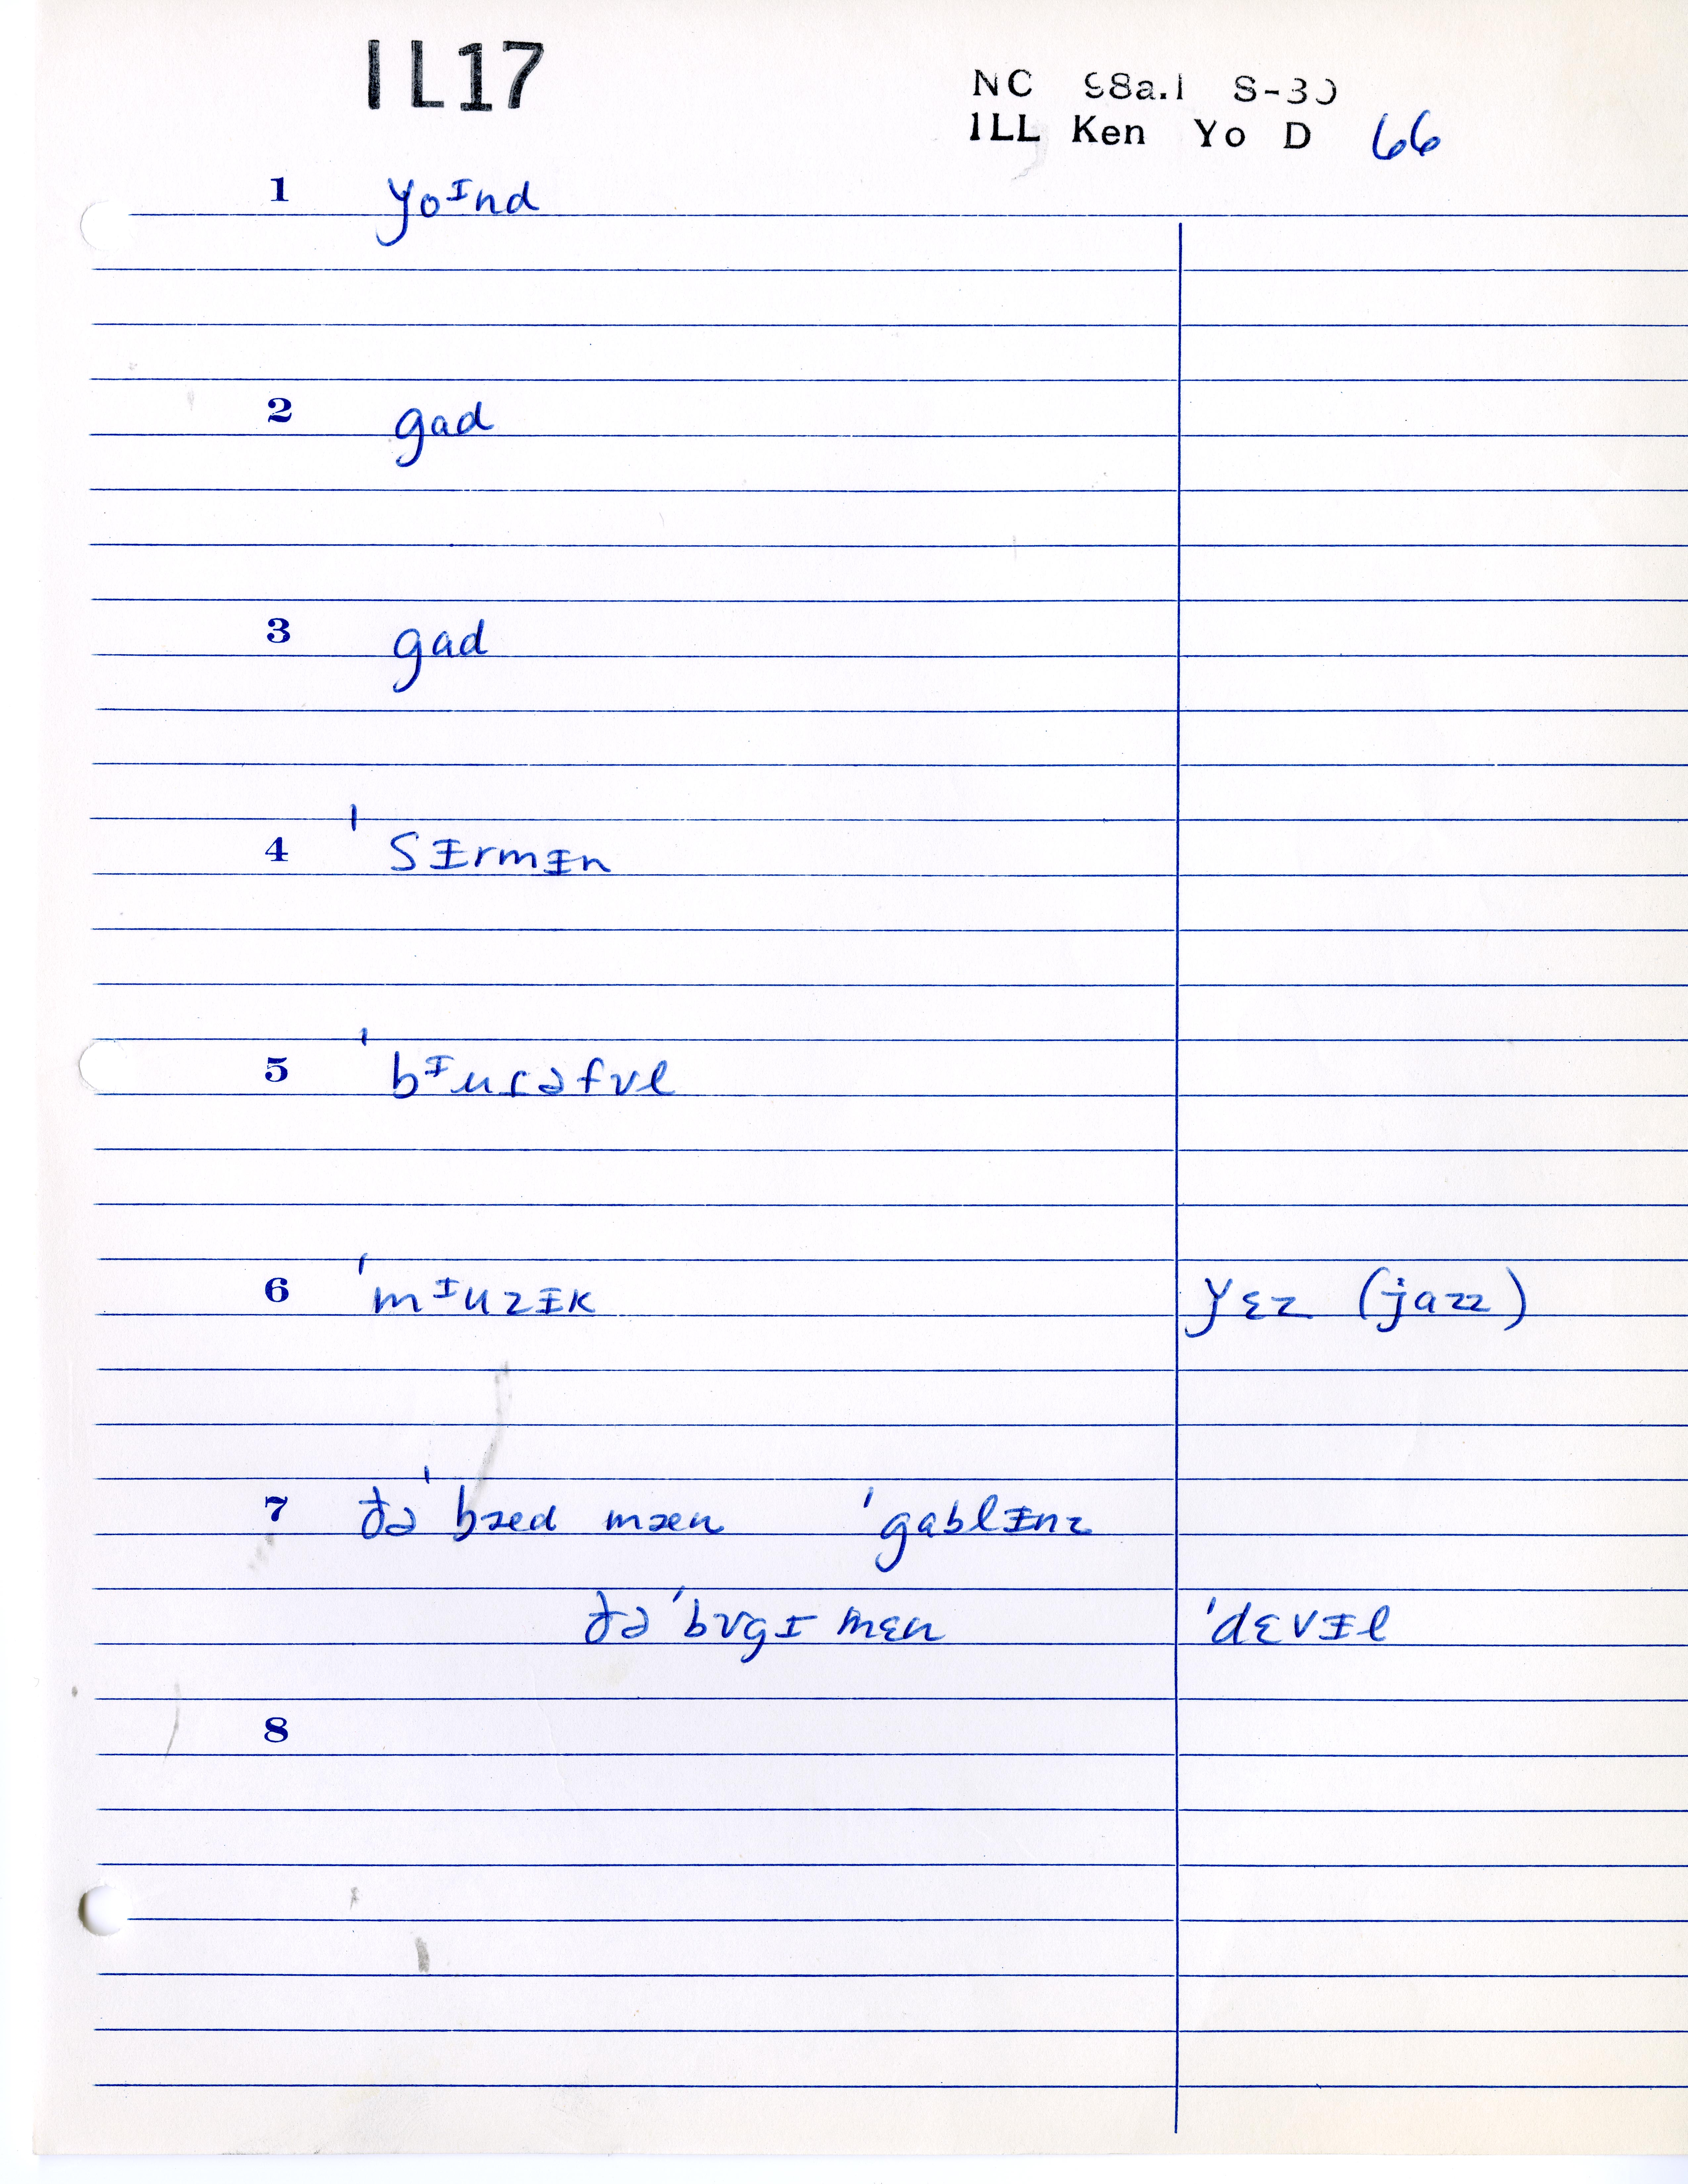 IL17
NC 98a.1 S-30
ILL Ken Yo D 66
1 yoᶦnd
2 gad
3 gad
4 ˈsɨrmɨn
5 ˈbᶦuɾəfʊl
6 ˈmᶦuzɨk yɛz (jazz)
7 ðə ˈbæd mæn ˈgablɨnz
ðə ˈbʊgɪ mɛn ˈdɛvɨl
8